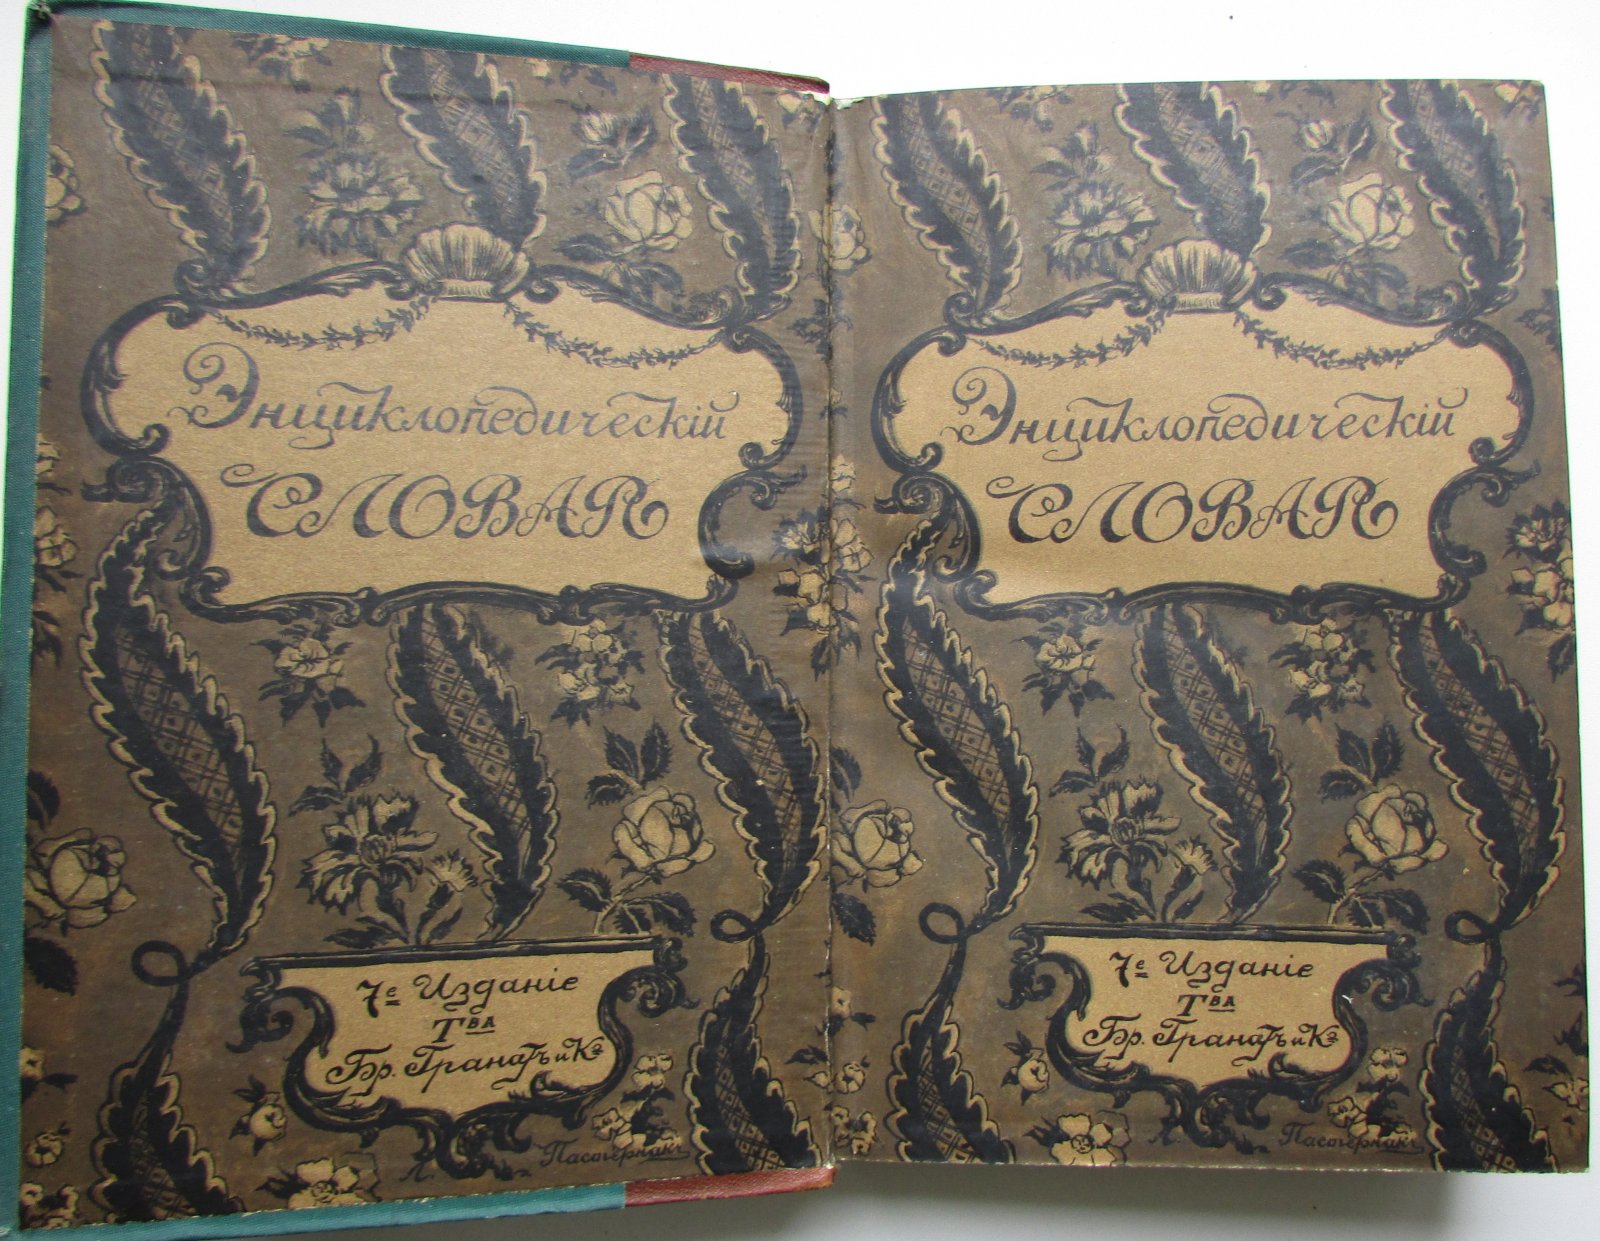 Энциклопедическій
СЛОВАРЬ
7е Изданіе
Тва
Бр. Гранатъ и Ко
Л. Пастернакъ
Энциклопедическій
СЛОВАРЬ
7е Изданіе
Тва
Бр. Гранатъ и Ко
Л. Пастернакъ